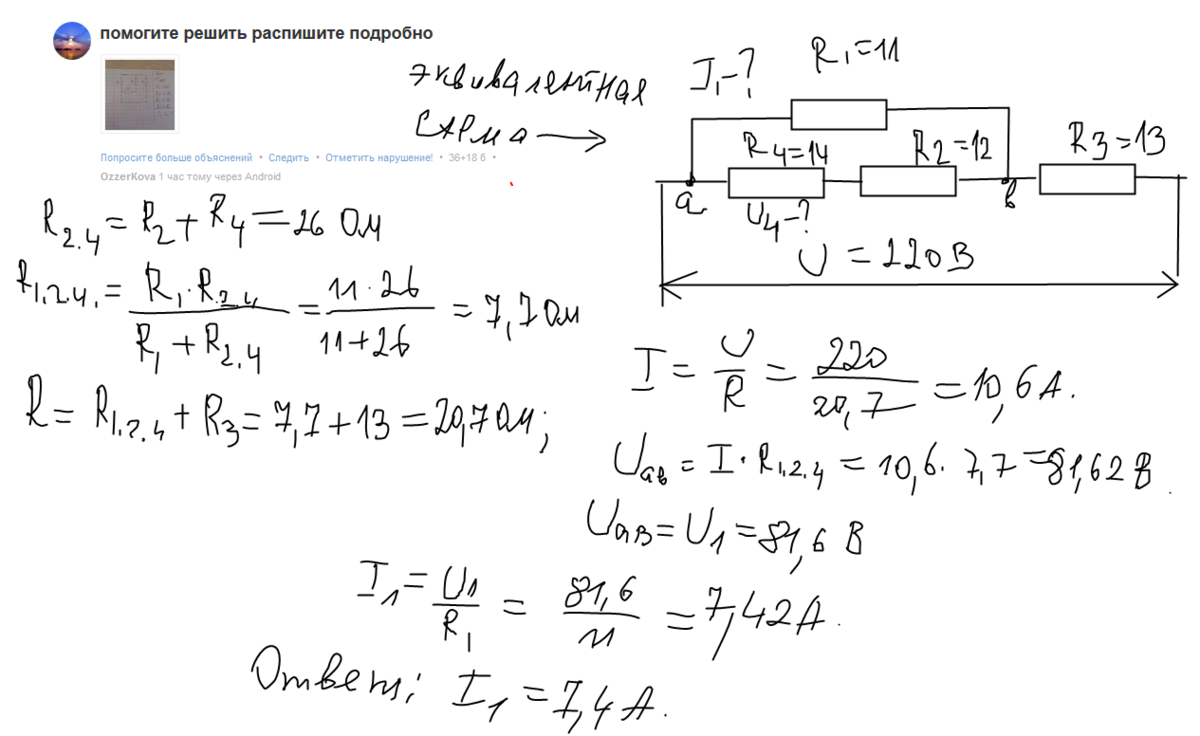 помогите решить распишите подробно
Попросите больше объяснений • Следить • Отметить нарушение! • 36+18 б •
OzzerKova 1 час тому через Android
эквивалентная
I₁-?
R₁=11
R₄=14
R2=12
R3=13
a
в
U₄-?
U = 220В
R₂.₄ = R₂ + R₄ = 26 Ом
R₁.₂.₄. = R₁·R₂.₄ / R₁ + R₂.₄ = 11·26 / 11+26 = 7,7 Ом
R = R₁.₂.₄ + R₃ = 7,7+13 = 20,7 Ом;
I = U / R = 220 / 20,7 = 10,6 А.
Uав = I · R₁,₂,₄ = 10,6 · 7,7 = 81,62 В.
Uав = U₁ = 81,6 В
I₁ = U₁ / R₁ = 81,6 / 11 = 7,42 А.
Ответ: I₁ = 7,4 А.